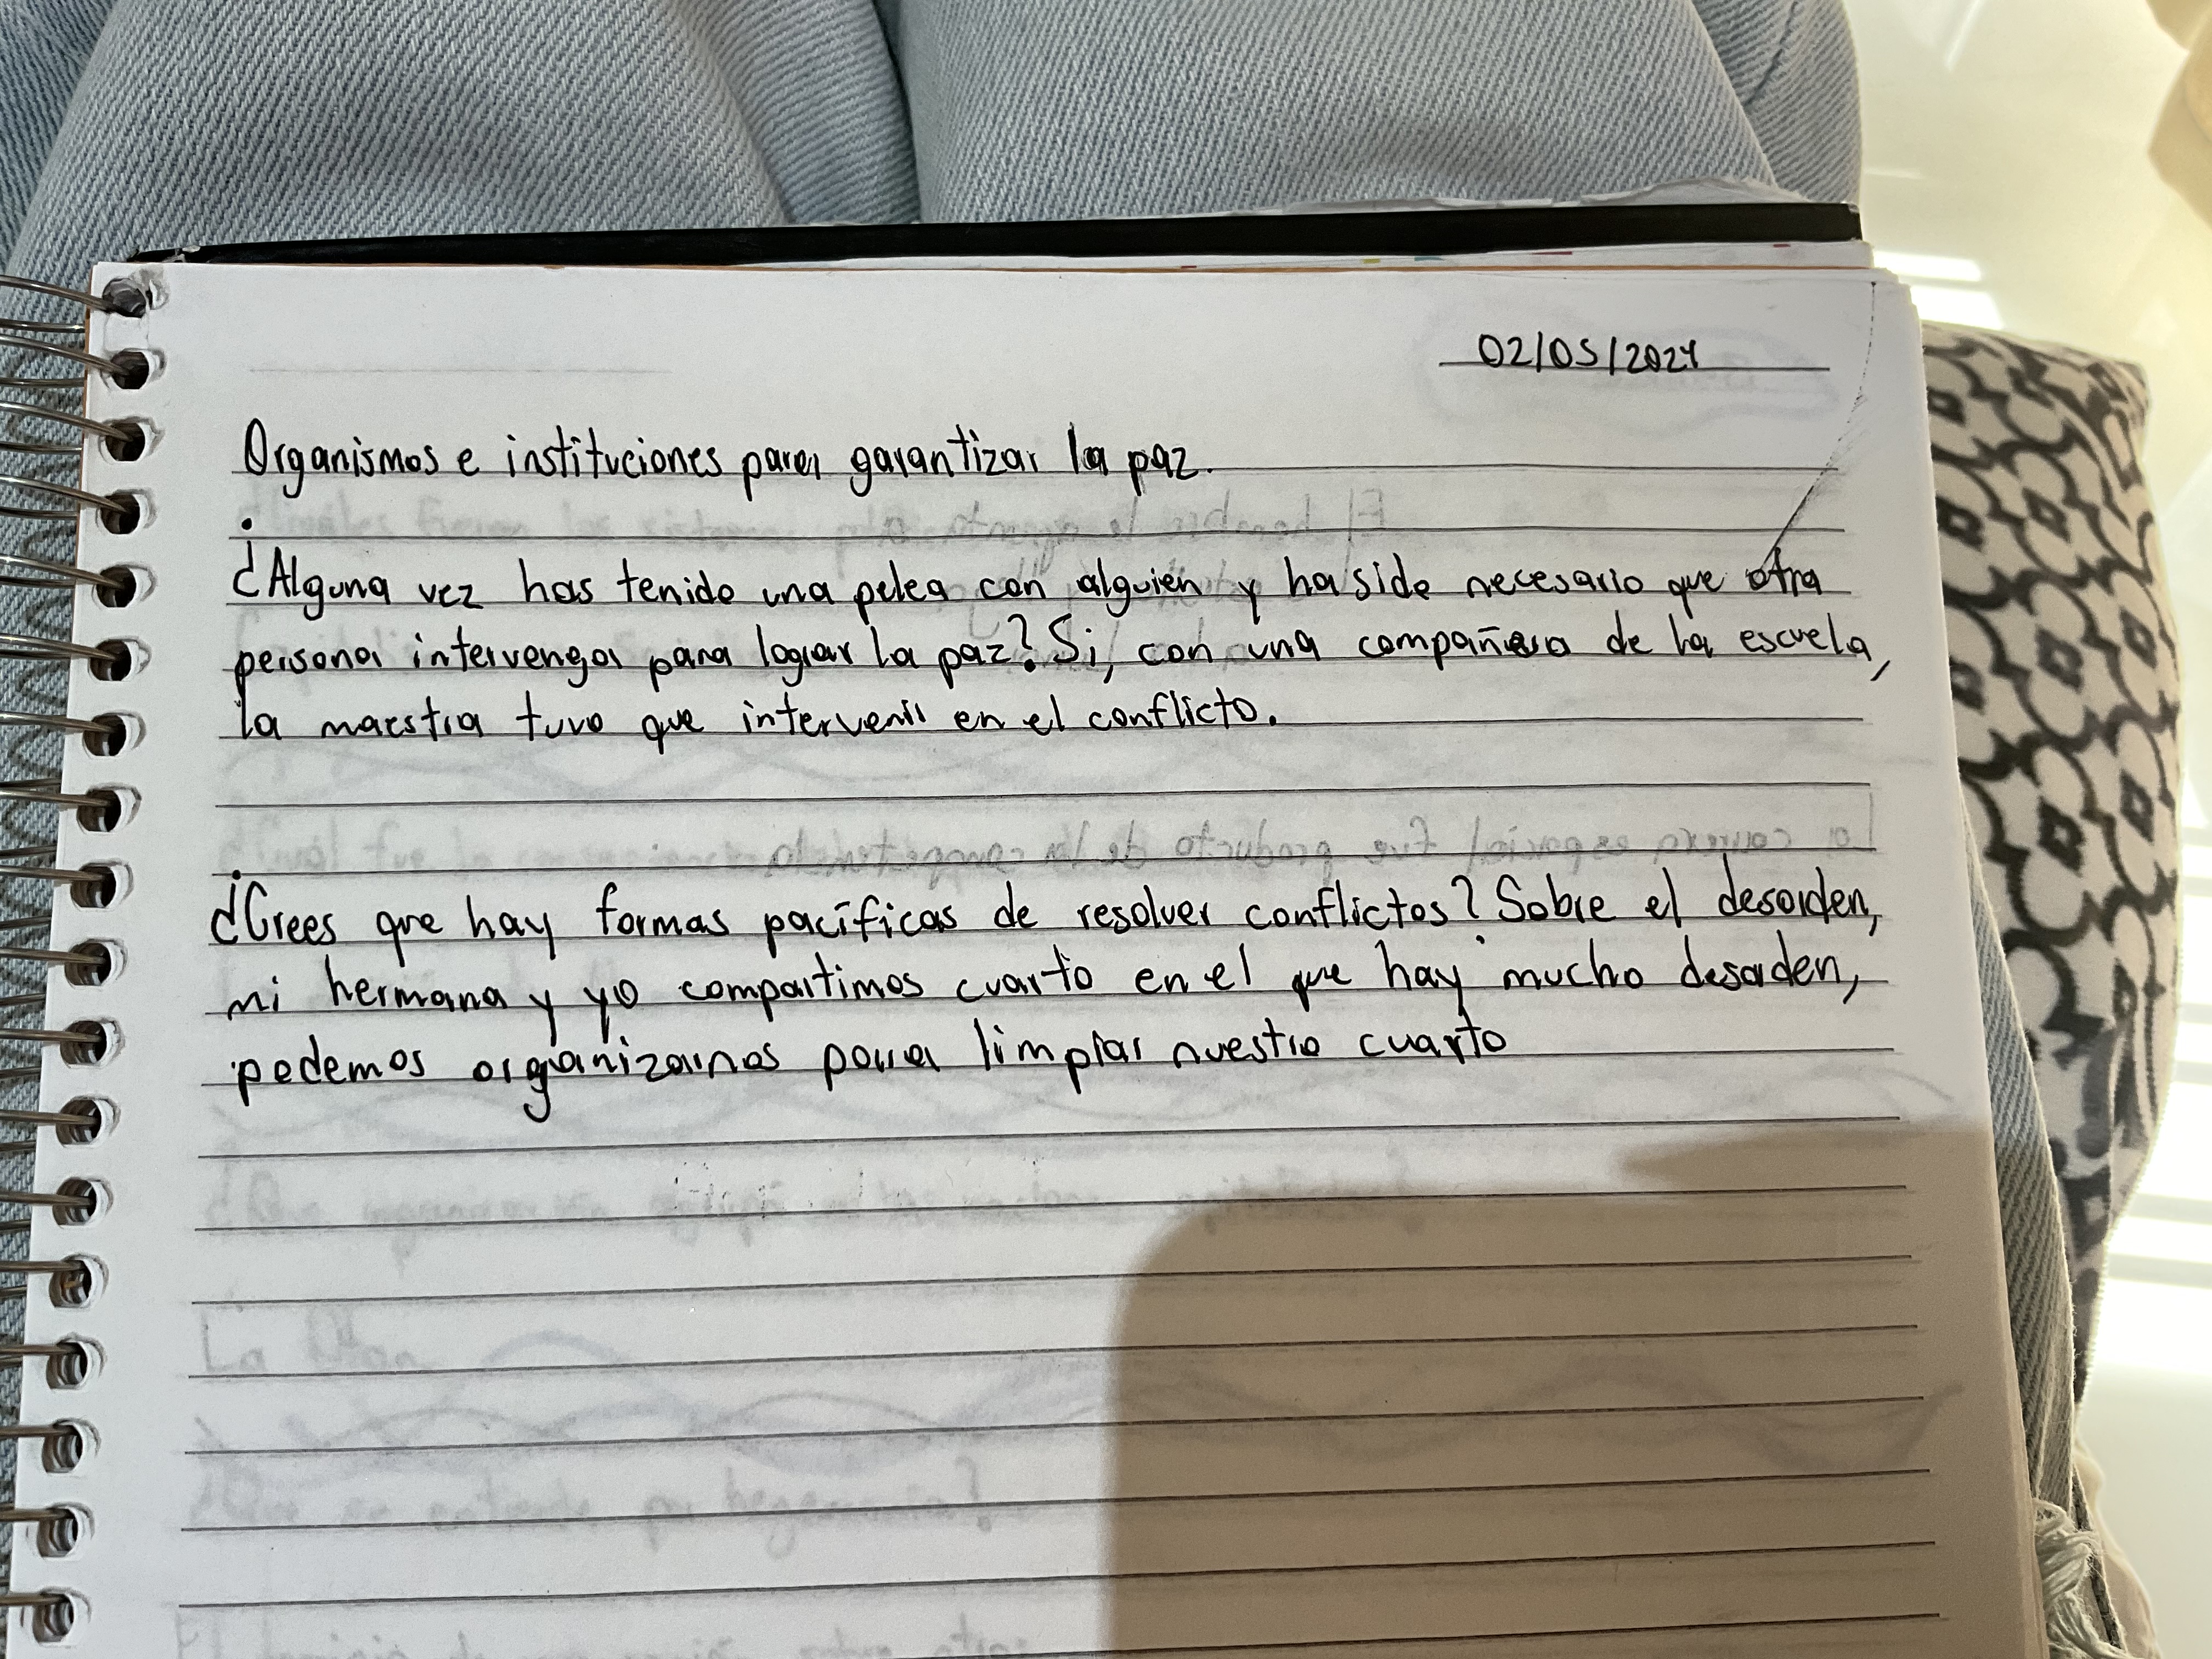 02/05/2024
Organismos e instituciones para garantizar la paz.
¿Alguna vez has tenido una pelea con alguien y ha sido necesario que otra
persona intervenga para lograr la paz? Si, con una compañera de la escuela,
la maestra tuvo que intervenir en el conflicto.
¿Crees que hay formas pacíficas de resolver conflictos? Sobre el desorden,
mi hermana y yo compartimos cuarto en el que hay mucho desorden,
podemos organizarnos para limpiar nuestro cuarto